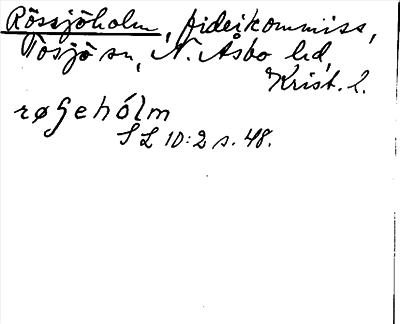 Rössjöholm, fideikommiss,
Tosjö sn, N. Åsbo hd,
Krist. l.
røʃehólm
SL 10:2 s. 48.